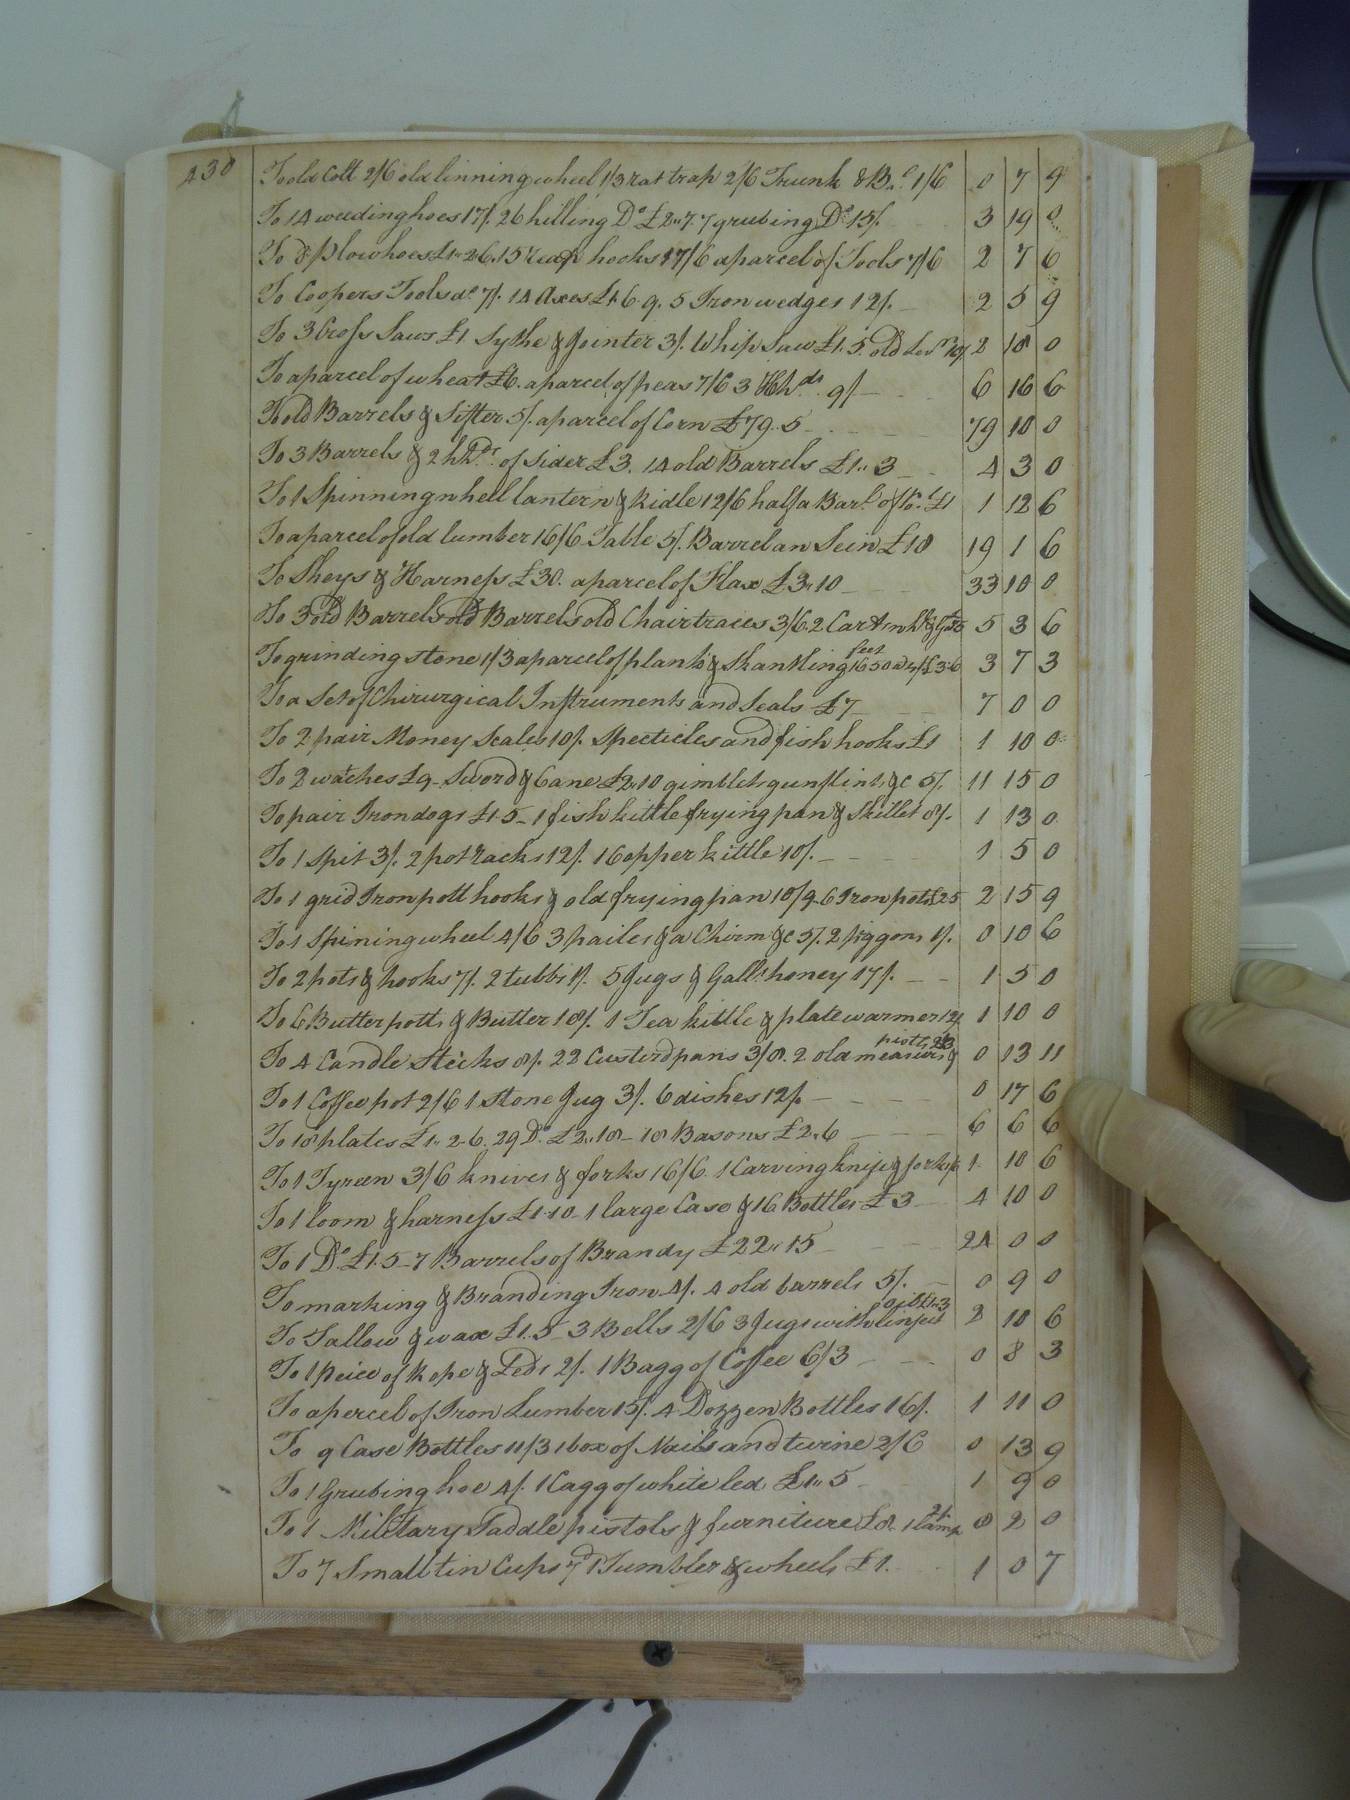 430
To old Colt 2/6 old linning wheel 1/3 rat trap 2/6 Trunk & B.c 1/6 0 7 9
To 14 weedinghoes 17/. 26 hilling Do £2..7. 7 grubing Do 15/. 3 19 0
To 8 plowhoes £1-2 6. 15 reap hooks 17/6 a parcel of Tools 7/6 2 7 6
To Coopers Tools &c 7/. 14 Axes £1 6.9. 5 Iron wedges 12/. 2 5 9
To 3 Cross Saws £1 Sythe & Jointer 3/. Whip Saw £1.5. old 10/. 2 18 0
To a parcel of wheat £6. a parcel of peas 7/6 3 Hhds. 9/ 6 16 6
To old Barrels & Sifter 5/. a parcel of Corn £79.5 79 10 0
To 3 Barrels & 2 hhds. of Sider £3. 14 old Barrels £1..3 4 3 0
To 1 Spinningwhell lantern & kidle 12/6 half a Barl. of £1 1 12 6
To a parcel of old lumber 16/6 Table 5/. Barrel an Sein £18 19 1 6
To Sheys & Harness £30. a parcel of Flax £3.10 33 10 0
To 3 old Barrels old Barrels old Chair traces 3/6 2 Cart 5 3 6
To grinding stone 1/3 a parcel of plank & Skantling feet 1650 @ 4/ £3-6 3 7 3
To a Set of Chirurgical Instruments and Seals £7 7 0 0
To 2 pair Money Scales 10/. Specticles and fish hooks £1 1 10 0
To 2 watches £9- Sword & Cane £2.10 gimblets gunflints &c 5/. 11 15 0
To pair Irondogs £1-5- 1 fish kittle frying pan & Skillet 8/. 1 13 0
To 1 Spit 3/. 2 pot racks 12/. 1 Copper kittle 10/. 1 5 0
To 1 grid Iron pott hooks & old frying pan 10/9 6 Iron pots £2 5 2 15 9
To 1 Spiningwheel 4/6 3 pailes & a Chirm &c 5/. 2 piggons 1/. 0 10 6
To 2 pots & hooks 7/. 2 tubbs 1/. 5 Jugs & Galls honey 17/. 1 5 0
To 6 Butter potts & Butter 18/. 1 Tea kittle & plate warmer 12/. 1 10 0
To 4 Candle Sticks 8/. 22 Custerdpans 3/8. 2 old measures & potts 2/3 0 13 11
To 1 Coffee pot 2/6 1 Stone Jug 3/. 6 dishes 12/. 0 17 6
To 18 plates £1..2-6. 29 Do £2..18- 18 Basons £2.6 6 6 6
To 1 Tyreen 3/6 knives & forks 16/6. 1 Carving knife & fork 1. 10 6
To 1 loom & harness £1-10- 1 large Case & 16 Bottles £3 4 10 0
To 1 Do £1.5- 7 Barrels of Brandy £22..15 24 0 0
To marking & Branding Iron 4/. 4 old barrels 5/. 0 9 0
To Tallow & wax £1.5- 3 Bells 2/6 3 Jugs with linseed oil £1-3 2 10 6
To 1 peice of Rope & Leds 2/. 1 Bagg of Coffee 6/3 0 8 3
To a percel of Iron Lumber 15/. 4 Dozzen Bottles 16/. 1 11 0
To 9 Case Bottles 11/3 1 box of Nails and twine 2/6 0 13 9
To 1 Grubing hoe 4/. 1 Cagg of white led £1..5 1 9 0
To 1 Military Saddle pistols & furniture £8. 1 lamp 2/. 8 2 0
To 7 Small tin Cups 7d 1 Tumbler & wheels £1. 1 0 7